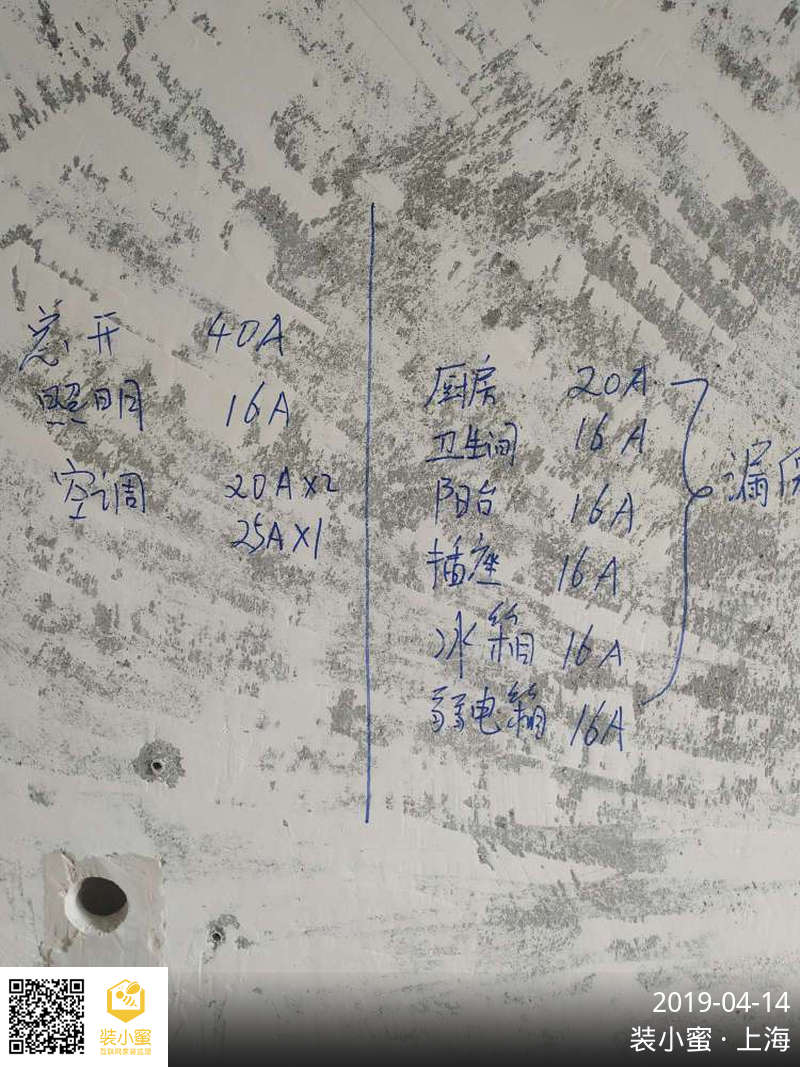 总开 40A
照明 16A
空调 20A×2
25A×1
厨房 20A
卫生间 16A
阳台 16A
插座 16A
冰箱 16A
弱电箱 16A
漏保
装小蜜
2019-04-14
装小蜜·上海